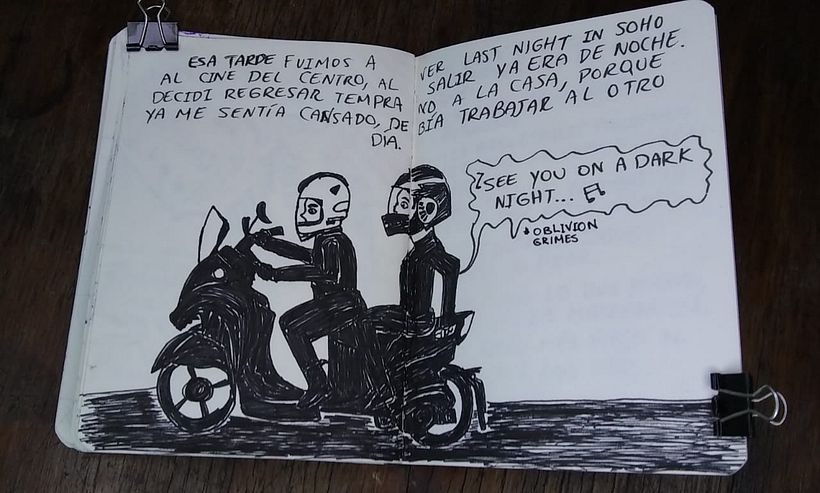 ESA TARDE FUIMOS A VER LAST NIGHT IN SOHO
AL CINE DEL CENTRO, AL SALIR YA ERA DE NOCHE.
DECIDI REGRESAR TEMPRANO A LA CASA, PORQUE
YA ME SENTÍA CANSADO, DEBÍA TRABAJAR AL OTRO
DIA.
♪SEE YOU ON A DARK
NIGHT... ♫
* OBLIVION
GRIMES